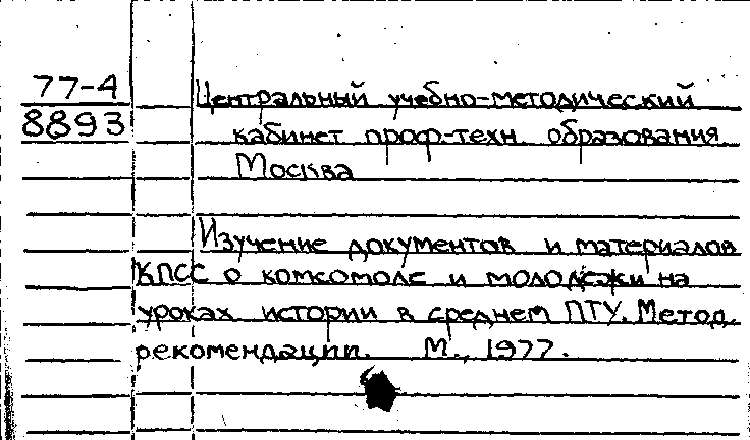 77-4
8893
Центральный учебно-методический
кабинет проф.-техн. образования
Москва
Изучение документов и материалов
КПСС о комсомоле и молодежи на
уроках истории в среднем ПТУ. Метод.
рекомендации. М., 1977.